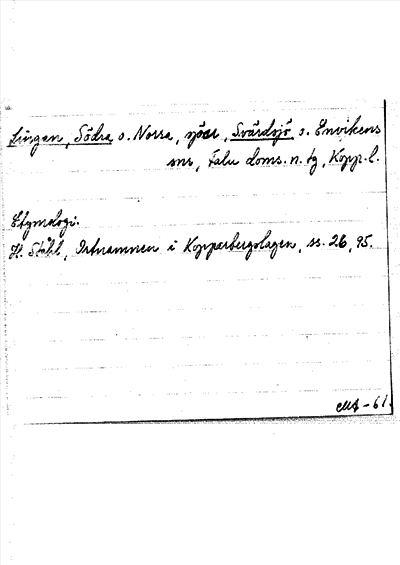 Liugen, Södra o. Norra, sjöar, Svärdsjö o. Envikens
sns, Falu doms. n. tg, Kopp. l.
Etymologi.
H. Ståhl, Ortnamnen i Kopparbergslagen, ss. 26, 95.
-61.